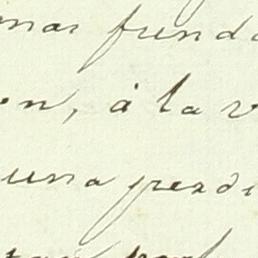 mas fund
on, á la v
una perdi